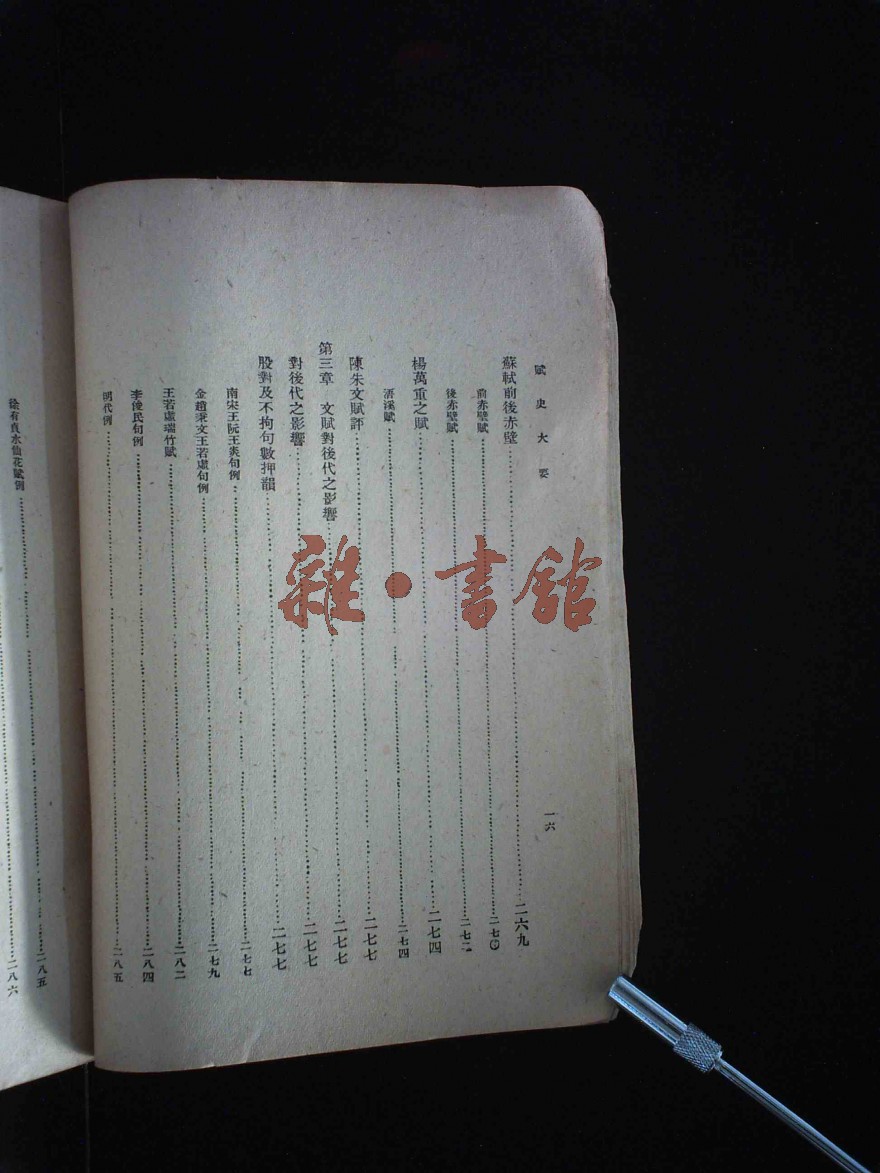 賦史大要
一六
蘇軾前後赤壁……二六九
前赤壁賦……二七〇
後赤壁賦……二七二
楊萬重之賦……二七四
浯溪賦……二七四
陳朱文賦評……二七七
第三章 文賦對後代之影響……二七七
對後代之影響……二七七
股對及不拘句數押韻……二七七
南宋王阮王炎句例……二七七
金趙秉文王若虛句例……二七九
王若虛瑞竹賦……二八二
李俊民句例……二八四
明代例……二八五
……二八五
徐有貞水仙花賦例……二八六
雜·書館